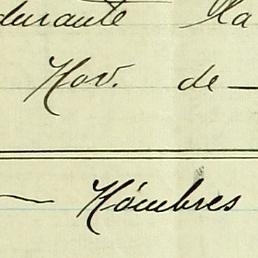 durante la
Nov. de —
— Hómbres